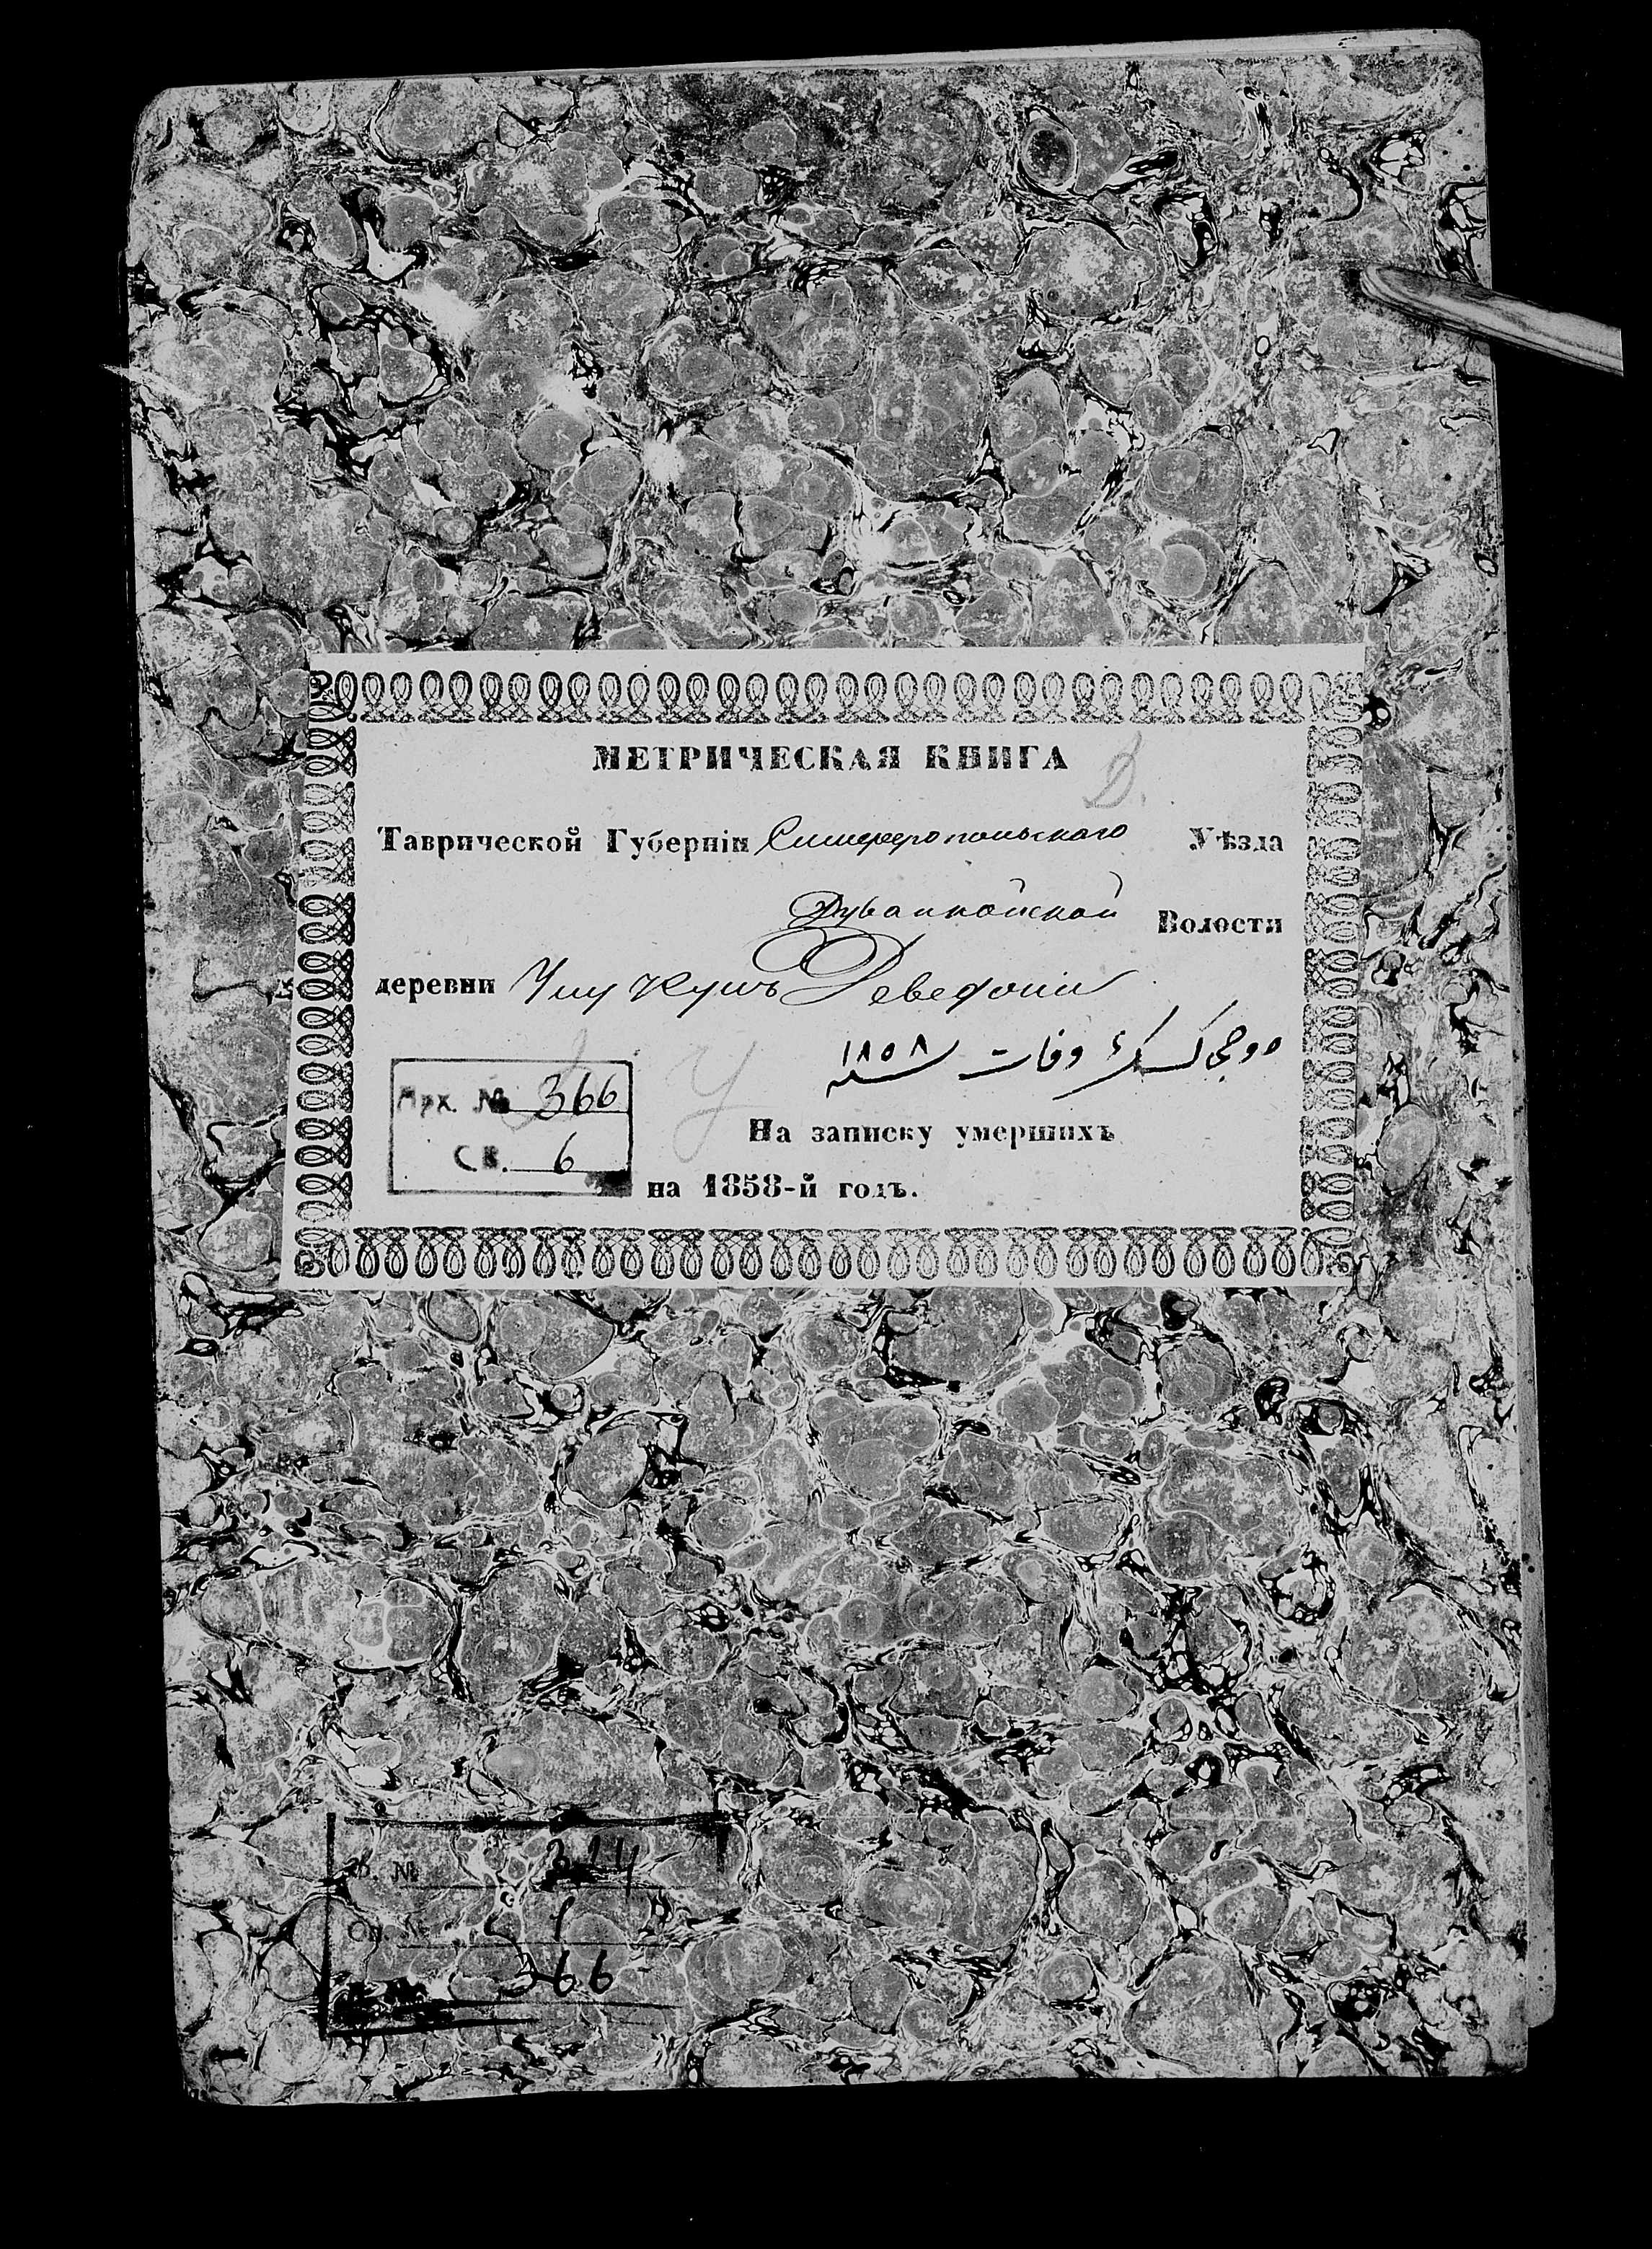 МЕТРИЧЕСКАЯ КНИГА
Д.
Таврической Губерніи Симферопольскаго Уѣзда
Дуванкойской Волости
деревни Учкуш Деведжи
وفات سنه ١٨٥٨
Арх. № 366
Св. 6
У
На записку умершихъ
на 1858-й годъ.
№
Св. №
366